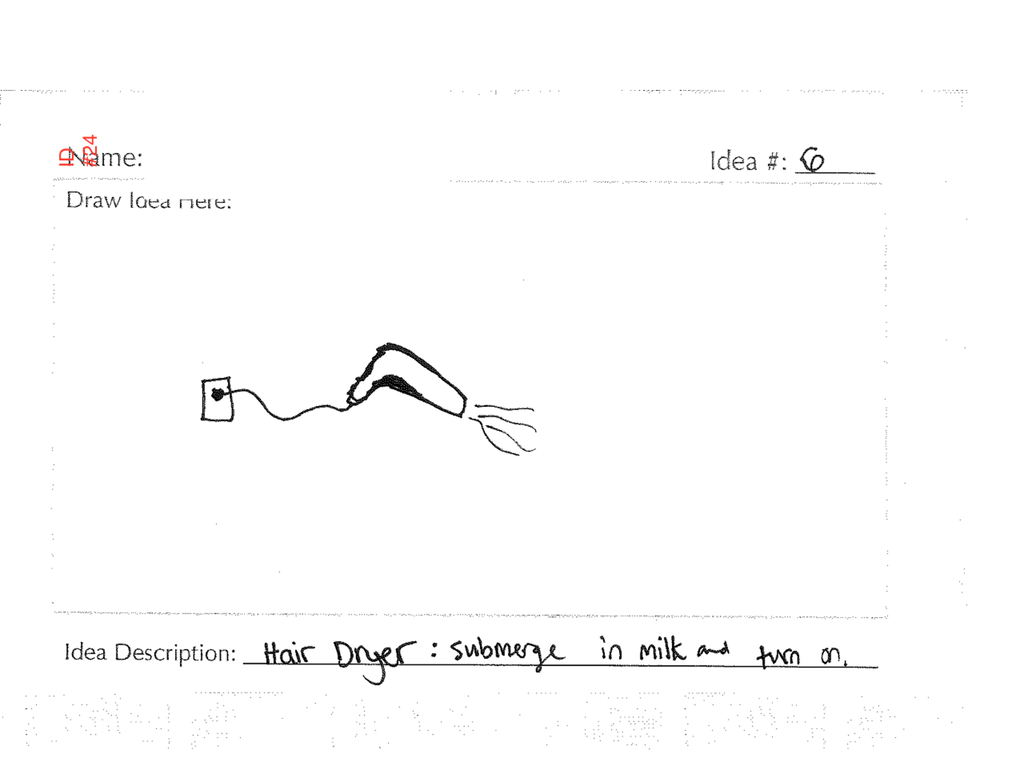 ID #24
Name:
Idea #: 6
Draw Idea Here:
Idea Description: Hair Dryer: submerge in milk and turn on.